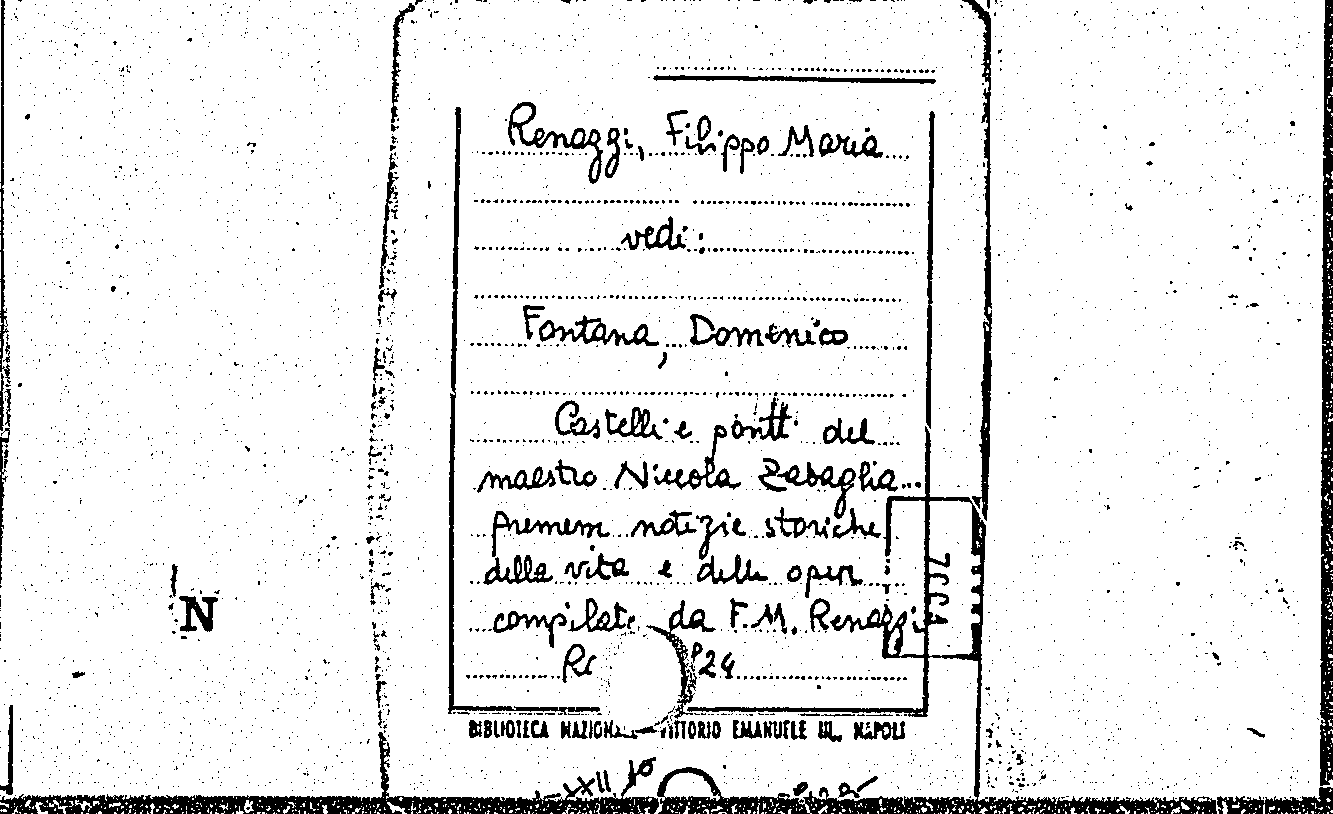 Renazzi, Filippo Maria
vedi:
Fontana, Domenico
Castelli e ponti del
maestro Niccola Zabaglia...
premesse notizie storiche
della vita e delle opere
compilate da F.M. Renazzi
24
BIBLIOTECA VITTORIO EMANUELE III, NAPOLI
N